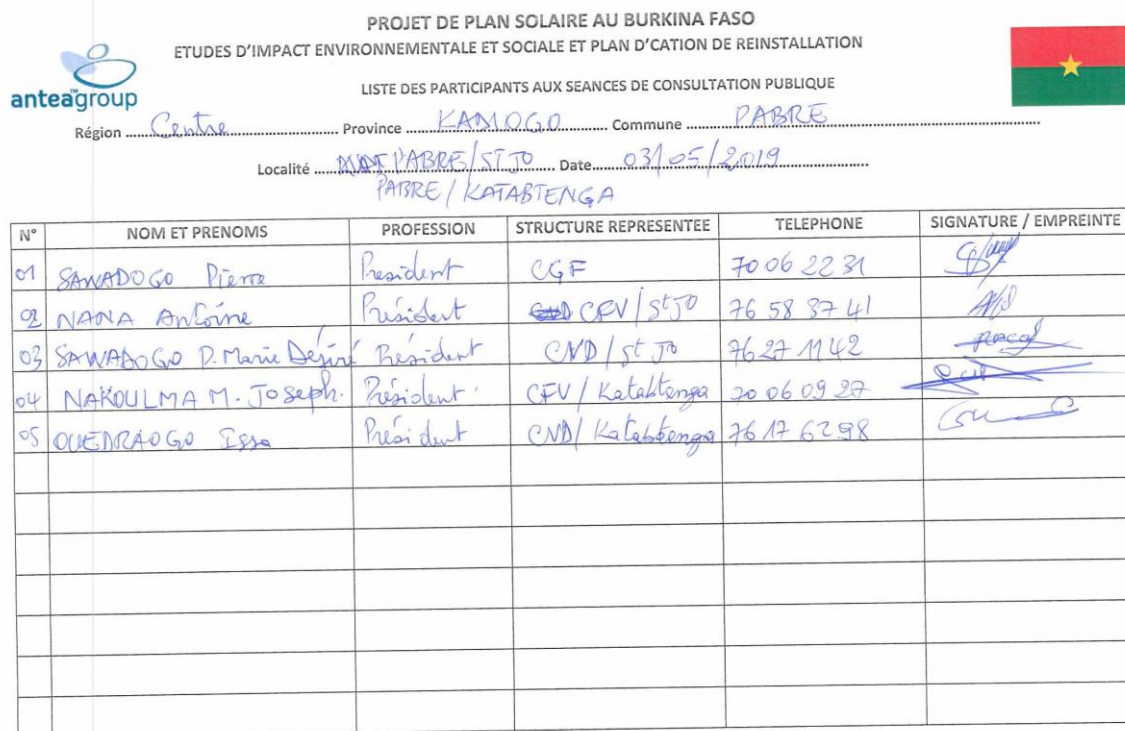 PROJET DE PLAN SOLAIRE AU BURKINA FASO
ETUDES D'IMPACT ENVIRONNEMENTALE ET SOCIALE ET PLAN D'CATION DE REINSTALLATION
anteagroup
LISTE DES PARTICIPANTS AUX SEANCES DE CONSULTATION PUBLIQUE
Région Centre Province KADIOGO Commune PABRE
Localité PABRE/ST JO Date 03/05/2019
PABRE/KATABTENGA
N° NOM ET PRENOMS PROFESSION STRUCTURE REPRESENTEE TELEPHONE SIGNATURE / EMPREINTE
01 SAWADOGO Pierre President CGF 70 06 22 31
02 NANA Antoine Président CFV/St JO 76 58 37 41
03 SAWADOGO P. Marie Désiré Président CVD/St JO 76 27 11 42
04 NAKOULMA M. Joseph. Président CFV/Katabtenga 70 06 09 27
05 OUEDRAOGO Issa Président CVD/Katabtenga 76 17 62 98